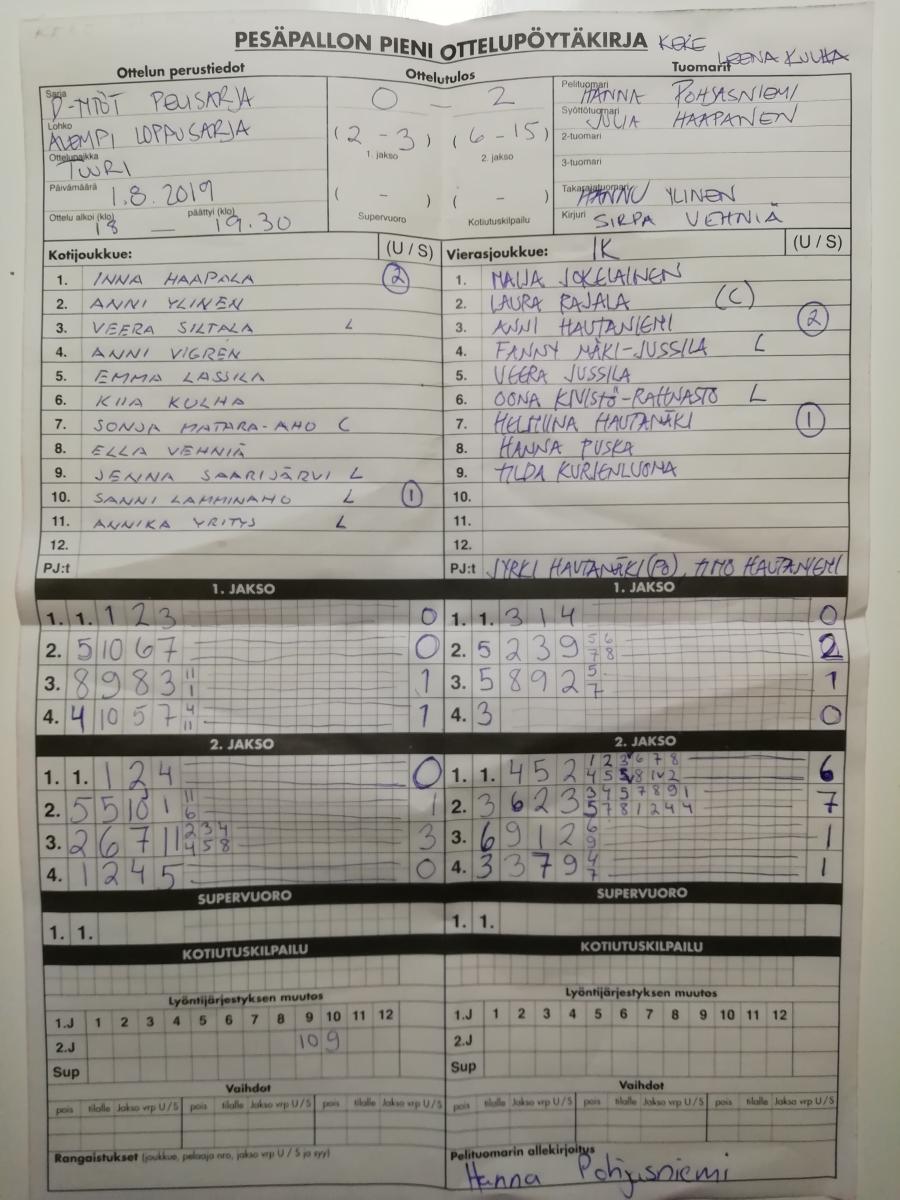 PESÄPALLON PIENI OTTELUPÖYTÄKIRJA KEKE
LEENA KUUHA
Ottelun perustiedot
Sarja D-TYTÖT PELISARJA
Lohko ALEMPI LOPPUSARJA
Ottelupaikka TUURI
Päivämäärä 1.8.2019
Ottelu alkoi (klo) 18 — päättyi (klo) 19.30
Ottelutulos
0 – 2
(2 – 3) (6 – 15)
1. jakso 2. jakso
( - ) ( - )
Supervuoro Kotiutuskilpailu
Tuomarit
Pelituomari HANNA POHJASNIEMI
Syöttötuomari JULIA HAAPANEN
2-tuomari
3-tuomari
Takarajatuomari HANNU YLINEN
Kirjuri SIRPA VEHNIÄ
Kotijoukkue: (U / S)
1. INNA HAAPALA 2
2. ANNI YLINEN
3. VEERA SILTALA L
4. ANNI VIGREN
5. EMMA LASSILA
6. KIIA KULHA
7. SONJA MATARA-AHO C
8. ELLA VEHNIÄ
9. JENNA SAARIJÄRVI L
10. SANNI LAMMINAHO L 1
11. ANNIKA YRITYS L
12.
PJ:t
Vierasjoukkue: IK (U / S)
1. MAIJA JOKELAINEN
2. LAURA RAJALA (C)
3. ANNI HAUTANIEMI 2
4. FANNY MÄKI-JUSSILA L
5. VEERA JUSSILA
6. OONA KIVISTÖ-RAHNASTO L
7. HELMIINA HAUTAMÄKI 1
8. HANNA PUSKA
9. TILDA KURJENLUOMA
10.
11.
12.
PJ:t JYRKI HAUTAMÄKI (PJ), TIMO HAUTANIEMI
1. JAKSO
1. 1. 1 2 3 0
2. 5 10 6 7 0
3. 8 9 8 3 11 1 1
4. 4 10 5 7 4 11 1
2. JAKSO
1. 1. 1 2 4 0
2. 5 5 10 1 11 6 1
3. 2 6 7 11 2 3 4 4 5 8 3
4. 1 2 4 5 0
SUPERVUORO
1. 1.
KOTIUTUSKILPAILU
Lyöntijärjestyksen muutos
1.J 1 2 3 4 5 6 7 8 9 10 11 12
2.J 10 9
Sup
Vaihdot
pois tilalle Jakso vrp U / S pois tilalle Jakso vrp U / S pois tilalle Jakso vrp U / S
Rangaistukset (joukkue, pelaaja nro, jakso vrp U / S ja syy)
1. JAKSO
1. 1. 3 1 4 0
2. 5 2 3 9 5 6 7 8 2
3. 5 8 9 2 5 7 1
4. 3 0
2. JAKSO
1. 1. 4 5 2 1 2 3 6 7 8 6
2. 3 6 2 3 3 4 5 7 8 9 1 5 7 8 1 2 4 4 7
3. 6 9 1 2 6 9 1
4. 3 3 7 9 4 7 1
SUPERVUORO
1. 1.
KOTIUTUSKILPAILU
Lyöntijärjestyksen muutos
1.J 1 2 3 4 5 6 7 8 9 10 11 12
2.J
Sup
Vaihdot
pois tilalle Jakso vrp U / S pois tilalle Jakso vrp U / S pois tilalle Jakso vrp U / S
Pelituomarin allekirjoitus
Hanna Pohjasniemi